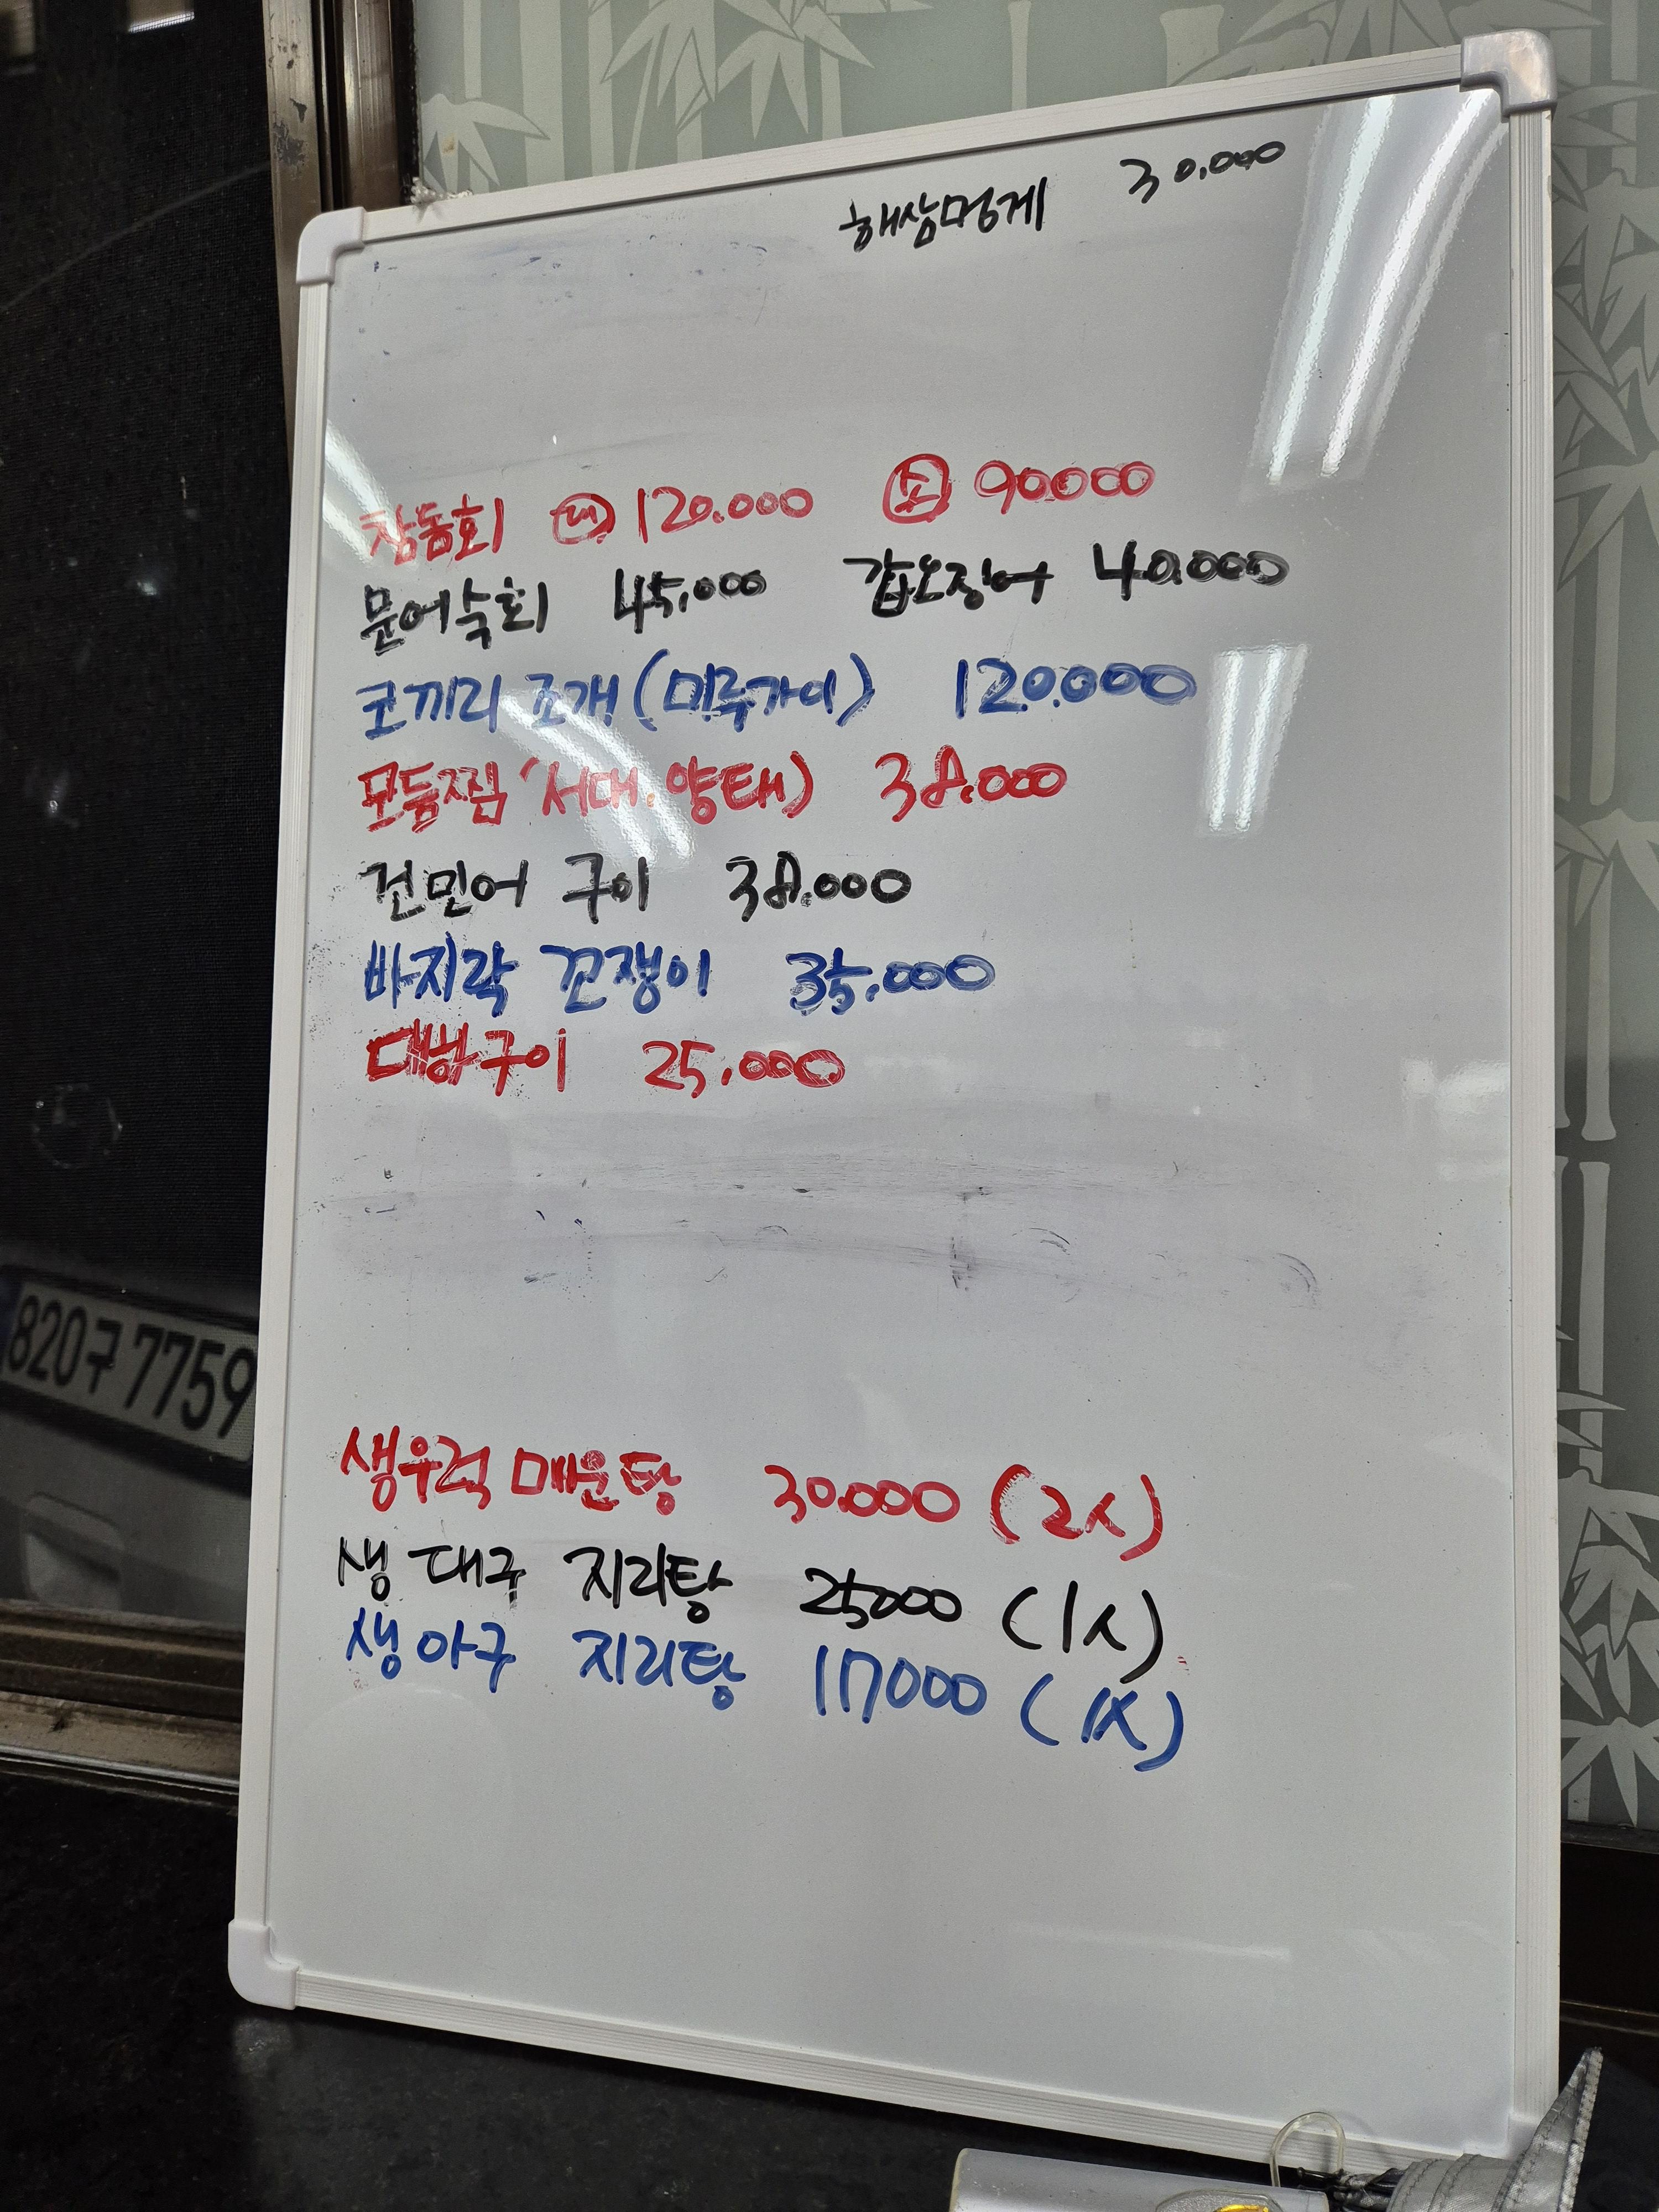 해삼멍게 30.000
참돔회 대 120.000 소 90000
문어숙회 45,000 갑오징어 40.000
코끼리 조개 (미루가이) 120.000
모듬찜 (서대. 양태) 38.000
건민어 구이 38.000
바지락 꼬쟁이 35,000
구이 25.000
생우럭 매운탕 30.000 (2人)
생대구 지리탕 25000 (1人)
생아구 지리탕 17000 (1人)
820구 7759